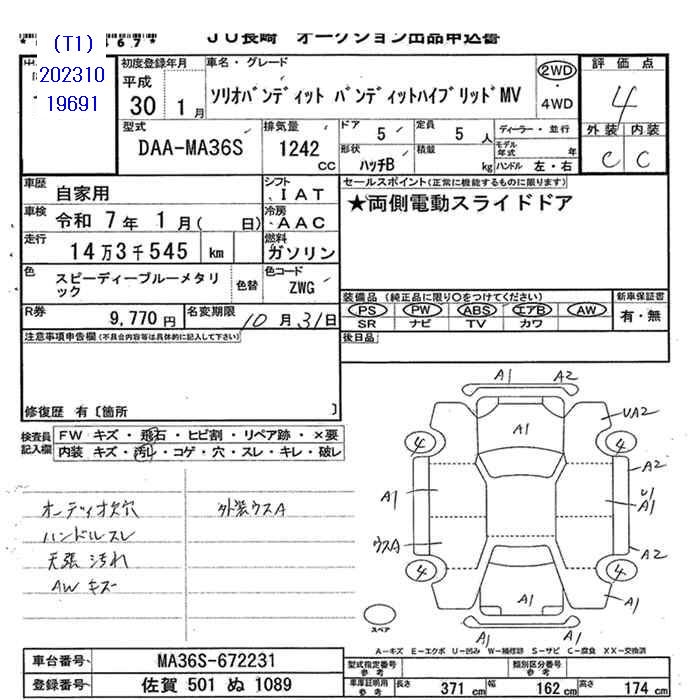 (T1)
202310
19691
*467*
JU長崎 オークション出品申込書
初度登録年月
平成
30 1月
車名・グレード
ソリオバンディット バンディットハイブリッドMV
2WD
・
4WD
評価点
4
外装 内装
C C
型式
DAA-MA36S
排気量
1242 CC
ドア 5
定員 5 人
ディーラー・並行
形状 ハッチB
積載 kg
モデル年式 年
ハンドル 左・右
車歴 自家用
シフト IAT
車検 令和 7年 1月( 日)
冷房 AAC
走行 14万3千545 km
燃料 ガソリン
色 スピーディーブルーメタリック
色替
色コード ZWG
R券 9,770円
名変期限 10月31日
セールスポイント(正常に機能するものに限ります)
★両側電動スライドドア
装備品(純正品に限り○をつけてください)
新車保証書
PS PW ABS エアB AW
有・無
SR ナビ TV カワ
後日品
注意事項申告欄(不具合内容等は具体的に記入して下さい)
修復歴 有〔箇所 〕
検査員記入欄
FW キズ・飛石・ヒビ割・リペア跡・×要
内装 キズ・汚レ・コゲ・穴・スレ・キレ・破レ
オーディオ欠穴
ハンドルスレ
天張 汚れ
AW キズ
外装ウスA
A1 A2
A1
UA2
4 4
A2
A1
U1
A1
ウスA
A2
4 4
A1
A1
A1 A1
スペア
A-キズ E-エクボ U-凹み W-補修跡 S-サビ C-腐食 XX-交換済
車台番号 MA36S-672231
登録番号 佐賀 501 ぬ 1089
型式指定番号
参考
類別区分番号
参考
車庫証明用
参考
長さ 371 cm
幅 162 cm
高さ 174 cm